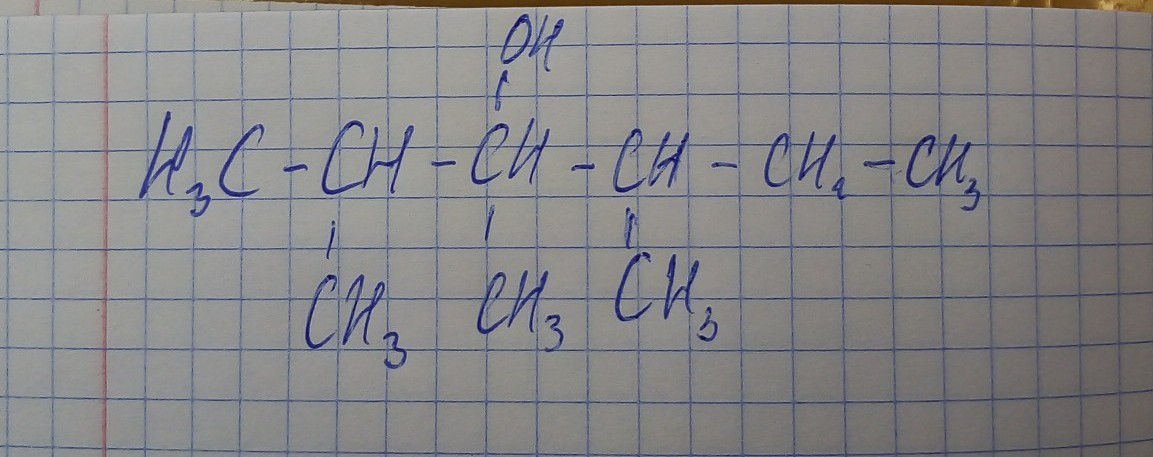 OH
H₃C - CH - CH - CH - CH₂ - CH₃
CH₃ CH₃ CH₃